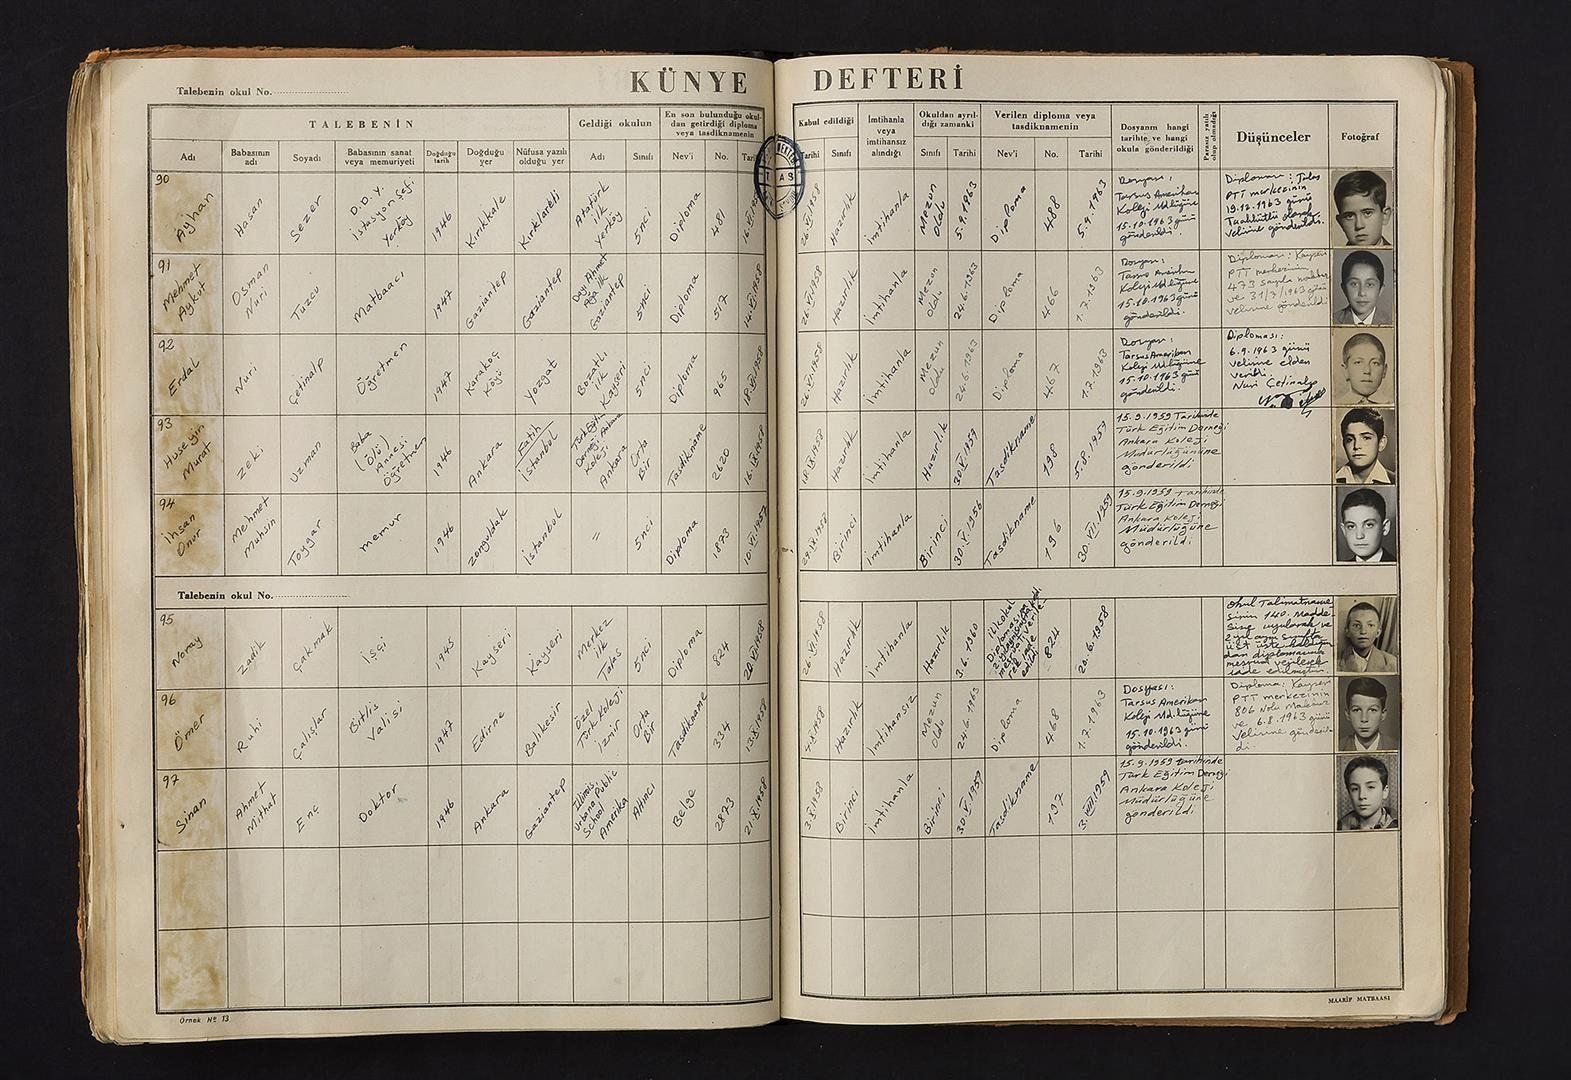 KÜNYE DEFTERİ
Talebenin okul No.
TALEBENİN
Geldiği okulun
En son bulunduğu okul-
dan getirdiği diploma
veya tasdiknamenin
Kabul edildiği
İmtihanla
veya
imtihansız
alındığı
Okuldan ayrıl-
dığı zamanki
Verilen diploma veya
tasdiknamenin
Dosyanın hangi
tarihte ve hangi
okula gönderildiği
Parasız yatılı
olup olmadığı
Düşünceler
Fotoğraf
Adı
Babasının
adı
Soyadı
Babasının sanat
veya memuriyeti
Doğduğu
tarih
Doğduğu
yer
Nüfusa yazılı
olduğu yer
Adı
Sınıfı
Nev'i
No.
Tarihi
Sınıfı
Sınıfı
Tarihi
Nev'i
No.
Tarihi
90
Ayhan
Hasan
Sezer
D.D.Y.
İstasyon Şefi
Yerköy
1946
Kırıkkale
Kırklareli
Atatürk
ilk
Yerköy
5nci
Diploma
481
Hazırlık
İmtihanla
Mezun
oldu
5.9.1963
Diploma
488
5.9.1963
Dosyası:
Tarsus Amerikan
Koleji Müdlüğüne
15.10.1963 günü
gönderildi.
Diploması: Talas
PTT merkezinin
19.12.1963 günü
Taahhütlü olarak
velisine gönderildi.
91
Mehmet
Aykut
Osman
Nuri
Tuzcu
Matbaacı
1947
Gaziantep
Gaziantep
Dayı Ahmet
Ağa ilk
Gaziantep
5nci
Diploma
517
Hazırlık
İmtihanla
Mezun
oldu
24.6.1963
Diploma
466
1.7.1963
Dosyası:
Tarsus Amerikan
Koleji Müdlüğüne
15.10.1963 günü
gönderildi.
Diploması: Kayseri
PTT merkezinin
473 sayılı makbuz
ve 31/7/1963 günü
velisine gönderildi
92
Erdal
Nuri
Çetinalp
Öğretmen
1947
Karakoç
Köyü
Yozgat
Bozatlı
ilk
Kayseri
5nci
Diploma
965
Hazırlık
İmtihanla
Mezun
oldu
24.6.1963
Diploma
467
1.7.1963
Dosyası:
Tarsus Amerikan
Koleji Müdlüğüne
15.10.1963 günü
gönderildi.
Diploması:
6.9.1963 günü
velisine elden
verildi.
Nuri Çetinalp
93
Huseyin
Murat
Zeki
Uzman
Baba
(Ölü)
Annesi
Öğretmen
1946
Ankara
Fatih
İstanbul
Türk Eğitim
Derneği Ankara
Koleji
Ankara
Orta
Bir
Tasdikname
2620
16.IX.1958
Hazırlık
İmtihanla
Hazırlık
Tasdikname
198
5.8.1959
15.9.1959 Tarihinde
Türk Eğitim Derneği
Ankara Koleji
Müdürlüğününe
gönderildi
94
İhsan
Onur
Mehmet
Muhsin
Toygar
memur
1946
Zonguldak
İstanbul
"
5nci
Diploma
1873
Birinci
İmtihanla
Birinci
Tasdikname
196
30.VI.1959
15.9.1959 Tarihinde
Türk Eğitim Derneği
Ankara Koleji
Müdürlüğüne
gönderildi
Talebenin okul No.
95
Noray
Zadik
Çakmak
İşçi
1945
Kayseri
Kayseri
Merkez
ilk
Talas
5nci
Diploma
824
Hazırlık
İmtihanla
Hazırlık
3.6.1960
824
20.6.1958
Okul Talimatname-
sinin 140. Madde-
sine uyularak ve
2 yıl aynı sınıfta
96
Ömer
Ruhi
Çalışlar
Bitlis
Valisi
1947
Edirne
Balıkesir
Özel
Türk Koleji
İzmir
Orta
Bir
Tasdikname
334
Hazırlık
İmtihansız
Mezun
oldu
24.6.1963
Diploma
468
1.7.1963
Dosyası:
Tarsus Amerikan
Koleji Md.lüğüne
15.10.1963 günü
gönderildi.
Diploma: Kayseri
PTT merkezinin
806 Nolu Makbuz
ve 6.8.1963 günü
Velisine gönderil-
di.
97
Sinan
Ahmet
Mithat
Enç
Doktor
1946
Ankara
Gaziantep
Illinois,
Urbana Public
School
Amerika
Altıncı
Belge
2873
Birinci
İmtihanla
Birinci
Tasdikname
197
3.VIII.1959
15.9.1959 tarihinde
Türk Eğitim Derneği
Ankara Koleji
Müdürlüğüne
gönderildi
Örnek No 13
MAARİF MATBAASI